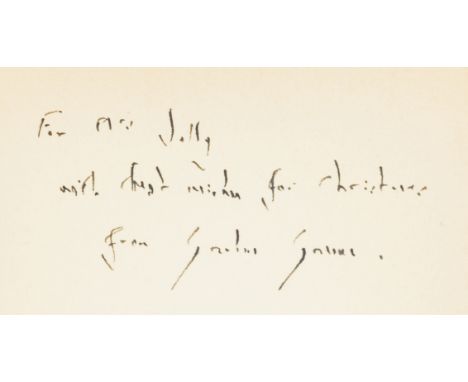 For Mrs Jolly
with best wishes for Christmas
from Gordon